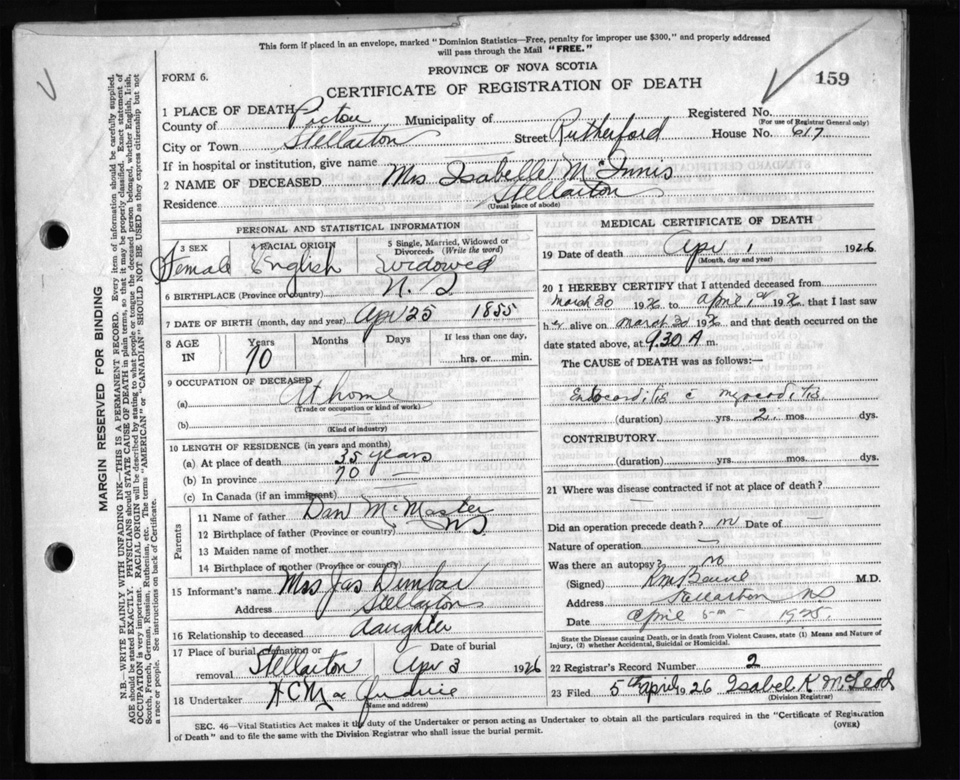 This form if placed in an envelope, marked "Dominion Statistics—Free, penalty for improper use $300," and properly addressed
will pass through the Mail "FREE."
PROVINCE OF NOVA SCOTIA
FORM 6.
CERTIFICATE OF REGISTRATION OF DEATH
159
1 PLACE OF DEATH
County of Pictou Municipality of Registered No.
(For use of Registrar General only)
City or Town Stellarton Street Rutherford House No. 617
If in hospital or institution, give name
2 NAME OF DECEASED Mrs Isabelle McInnis
Residence Stellarton
(Usual place of abode)
PERSONAL AND STATISTICAL INFORMATION
3 SEX 4 RACIAL ORIGIN 5 Single, Married, Widowed or Divorced (Write the word)
Female English widowed
6 BIRTHPLACE (Province or country) N. S.
7 DATE OF BIRTH (month, day and year) Apr 25 1855
8 AGE IN Years Months Days If less than one day,
70 hrs. or min.
9 OCCUPATION OF DECEASED
(a) At home
(Trade or occupation or kind of work)
(b)
(Kind of industry)
10 LENGTH OF RESIDENCE (in years and months)
(a) At place of death 35 years
(b) In province 70 —
(c) In Canada (if an immigrant)
Parents
11 Name of father Dan McMaster
12 Birthplace of father (Province or country) NS
13 Maiden name of mother
14 Birthplace of mother (Province or country)
15 Informant's name Mrs Jas Dunbar
Address Stellarton
16 Relationship to deceased daughter
17 Place of burial, cremation or removal Date of burial
Stellarton Apr 3 1926
18 Undertaker
(Name and address)
MEDICAL CERTIFICATE OF DEATH
19 Date of death Apr 1 1926
(Month, day and year)
20 I HEREBY CERTIFY that I attended deceased from
March 30 1926 to April 1st 1926, that I last saw
her alive on March 30 1926 and that death occurred on the
date stated above, at 9.30 A m.
The CAUSE OF DEATH was as follows:—
Endocarditis c̄ myocarditis
(duration) yrs. 2 mos. dys.
CONTRIBUTORY
(duration) yrs. mos. dys.
21 Where was disease contracted if not at place of death? —
Did an operation precede death? no Date of —
Nature of operation —
Was there an autopsy? no
(Signed) M.D.
Address Stellarton NS
Date April 5th 1925
State the Disease causing Death, or in death from Violent Causes, state (1) Means and Nature of
Injury, (2) whether Accidental, Suicidal or Homicidal.
22 Registrar's Record Number 2
23 Filed 5th April 1926 Isabel K McLeod
(Division Registrar)
SEC. 46—Vital Statistics Act makes it the duty of the Undertaker or person acting as Undertaker to obtain all the particulars required in the "Certificate of Registration
of Death" and to file the same with the Division Registrar who shall issue the burial permit.
(OVER)
MARGIN RESERVED FOR BINDING
N.B.—WRITE PLAINLY WITH UNFADING INK—THIS IS A PERMANENT RECORD. Every item of information should be carefully supplied.
AGE should be stated EXACTLY. PHYSICIANS should STATE CAUSE OF DEATH in plain terms, so that it may be properly classified. Exact statement of
OCCUPATION is very important. RACIAL ORIGIN will be described by stating to what people or tongue the deceased person belonged, whether English, Irish,
Scotch, French, German, Russian, Ruthenian, etc. The terms "AMERICAN" or "CANADIAN" SHOULD NOT BE USED as they express citizenship but not
a race or people. See instructions on back of Certificate.